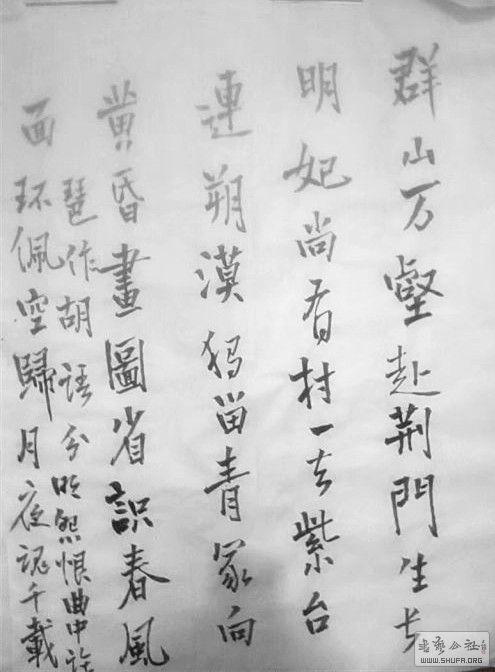 群山万壑赴荆門生长
明妃尚有村一去紫台
連朔漠独留青冢向
黄昏畫圖省識春風
面环佩空歸月夜魂千載
琶作胡语分明怨恨曲中論
公社
WWW.SHUFA.ORG